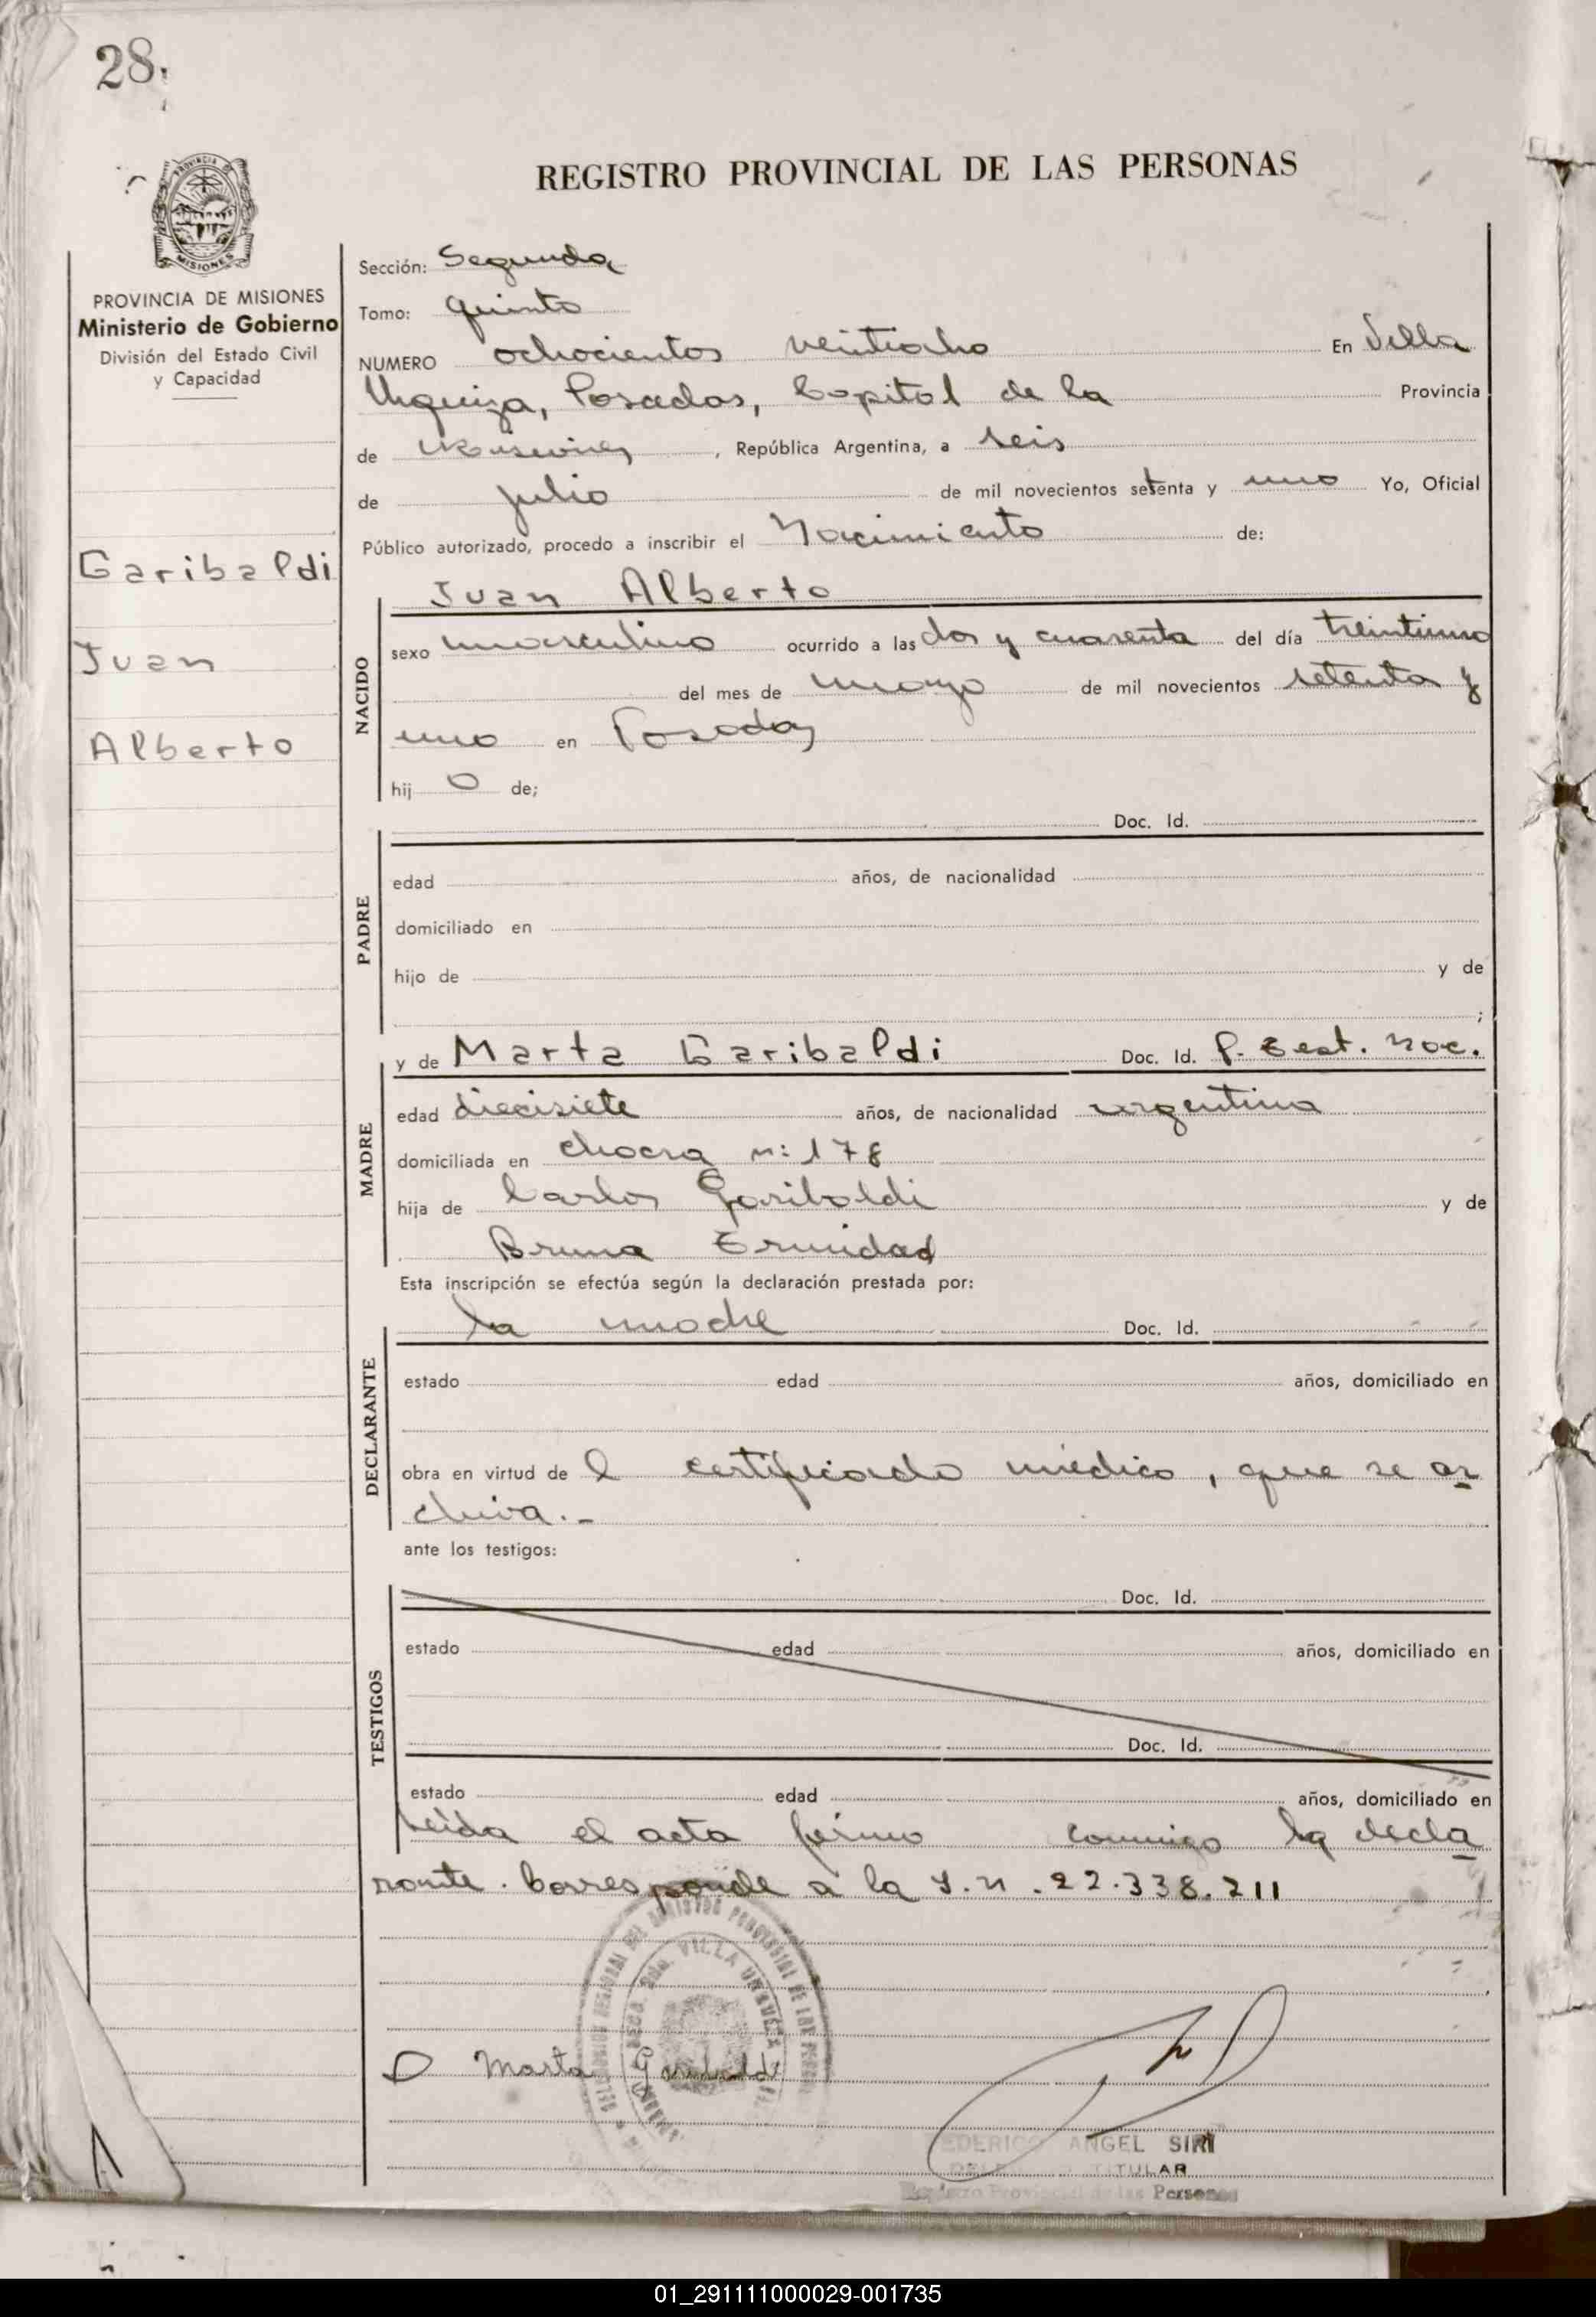 28.
REGISTRO PROVINCIAL DE LAS PERSONAS
PROVINCIA DE MISIONES
MISIONES
PROVINCIA DE MISIONES
Ministerio de Gobierno
División del Estado Civil
y Capacidad
Garibaldi
Juan
Alberto
Sección: Segunda
Tomo: quinto
NUMERO ochocientos veintiocho En Villa
Urquiza, Posadas, Capital de la Provincia
de Misiones, República Argentina, a seis
de julio de mil novecientos setenta y uno Yo, Oficial
Público autorizado, procedo a inscribir el Nacimiento de:
Juan Alberto
NACIDO
sexo masculino ocurrido a las dos y cuarenta del día treintiuno
del mes de marzo de mil novecientos setenta y
uno en Posadas
hij o de;
Doc. Id.
PADRE
edad años, de nacionalidad
domiciliado en
hijo de y de
;
y de Marta Garibaldi Doc. Id. P. Nac.
MADRE
edad diecisiete años, de nacionalidad argentina
domiciliada en chacra n: 178
hija de Carlos Garibaldi y de
Bruna Trinidad
Esta inscripción se efectúa según la declaración prestada por:
la madre Doc. Id.
DECLARANTE
estado edad años, domiciliado en
obra en virtud de l certificado médico, que se ar
chiva.-
ante los testigos:
Doc. Id.
TESTIGOS
estado edad años, domiciliado en
Doc. Id.
estado edad años, domiciliado en
Leída el acta firma conmigo la decla
rante. Corresponde a la I.N. 22.338.211
VILLA URQUIZA
Marta Garibaldi
FEDERICO ANGEL SIRI
TITULAR
Registro Provincial de las Personas
01_291111000029-001735